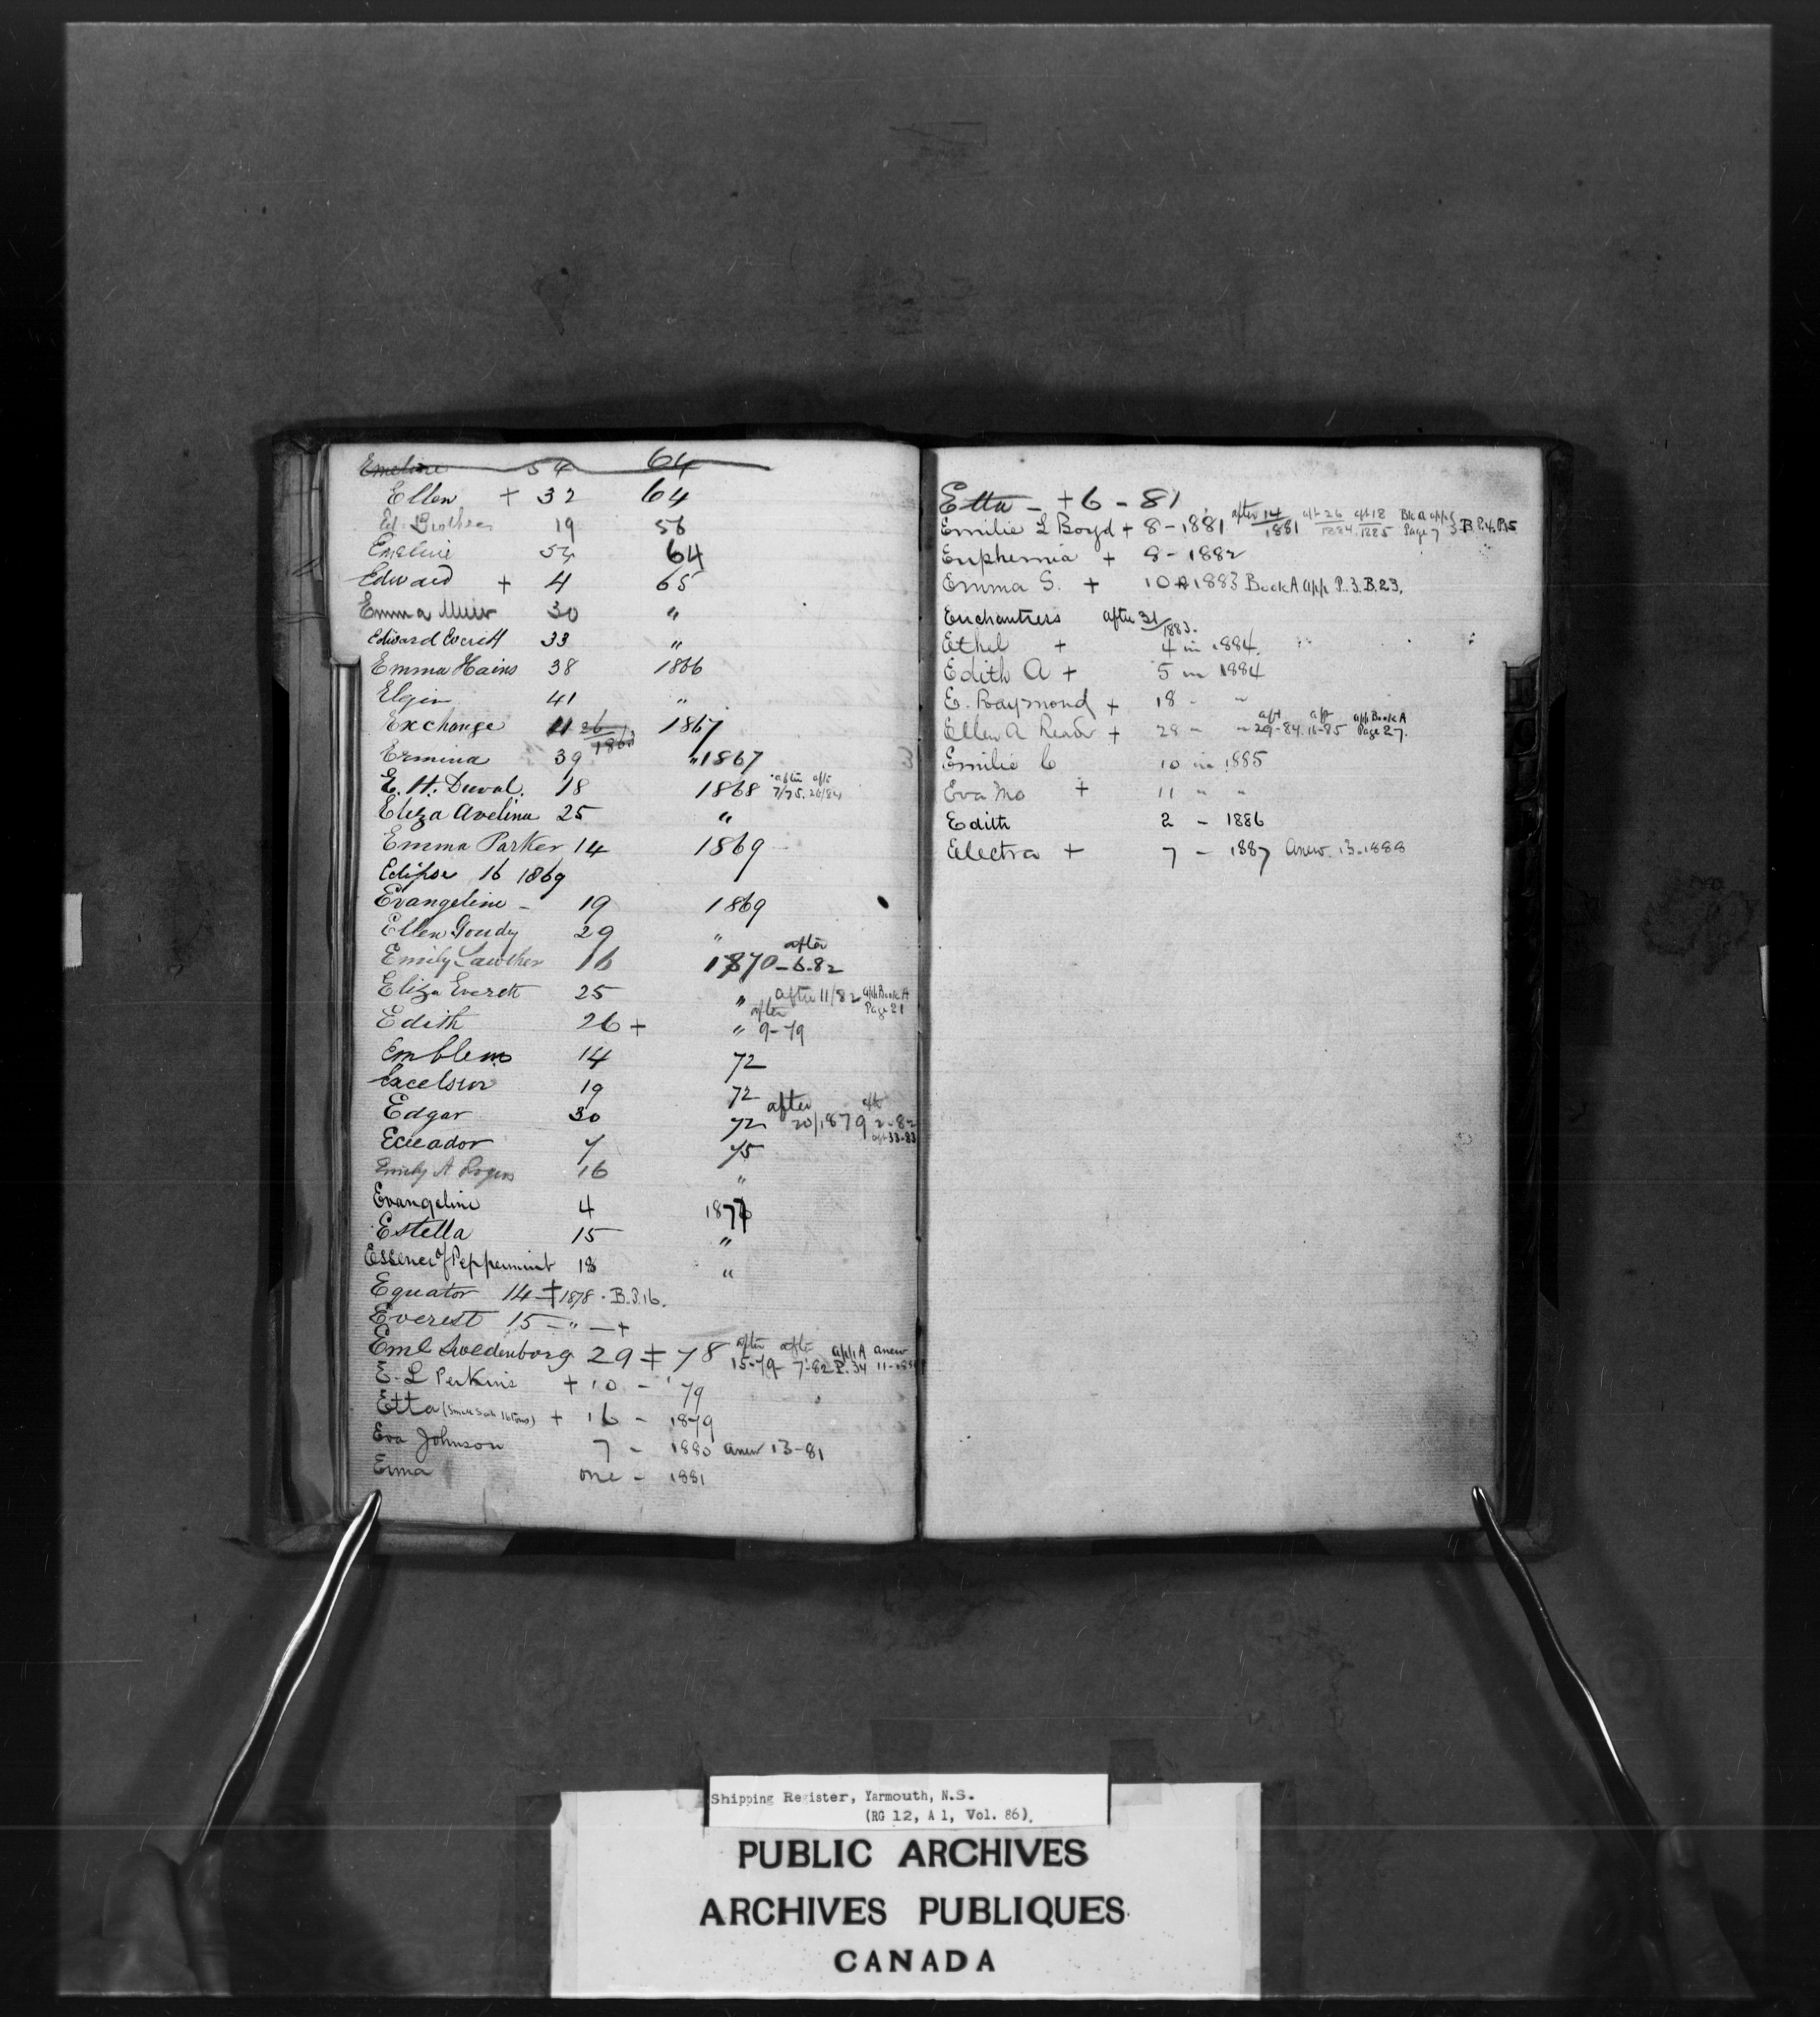 Emeline 54 64
Ellen + 32 64
Ed. Brothers 19 56
Emeline 54 64
Edward + 4 65
Emma Muir 30 "
Edward Everett 33 "
Emma Hains 38 1866
Elgin 41 "
Exchange 11 26/186 1867
Ermina 39 "1867
E. H. Duval. 18 1868 after 7/75. aft 26/84
Eliza Avelina 25 "
Emma Parker 14 1869
Eclipse 16 1869
Evangeline - 19 1869
Ellen Goudy 29 "
Emily Lawther 16 1870 - after 6-82
Eliza Everett 25 " after 11/82 aph Book A Page 21
Edith 26 + " after 9-79
Emblem 14 72
Excelsior 19 72
Edgar 30 72 after 20/1879 aft 2-82 aft 33-83
Ecuador 7 75
Emily A Rogers 16 "
Evangeline 4 187
Estella 15 "
Essence of Peppermint 18 "
Equator 14 ‡ 1878. B.P.16.
Everest 15 - " - +
Eml Swedenborg 29 ‡ 78 after 15-79 after 7-82 aph A P. 34 anew 11-188
E. L Perkins + 10 - '79
Etta (Small Sch 16 Tons) + 16 - 1879
Eva Johnson 7 - 1880 anew 13-81
Erma one - 1881
Etta - + 6 - 81
Emilie L Boyd + 8 - 1881 after 14/1881 aft 26/1884. aft 18/1885 Bk A app Page 7 B P.4. P.15
Euphemia + 8 - 1882
Emma S. + 10 1883 Book A app P. 3. B. 23.
Enchantress after 31/1883.
Ethel + 4 in 1884.
Edith A + 5 in 1884
E. Raymond + 18 - "
Ellen A Reade + 28 " " aft 29-84. aft 11-85 aph Book A Page 27.
Emilie C 10 in 1885
Eva Mo + 11 " "
Edith 2 - 1886
Electra + 7 - 1887 Anew. 13-1888
Shipping Register, Yarmouth, N.S.
(RG 12, A 1, Vol. 86).
PUBLIC ARCHIVES
ARCHIVES PUBLIQUES
CANADA